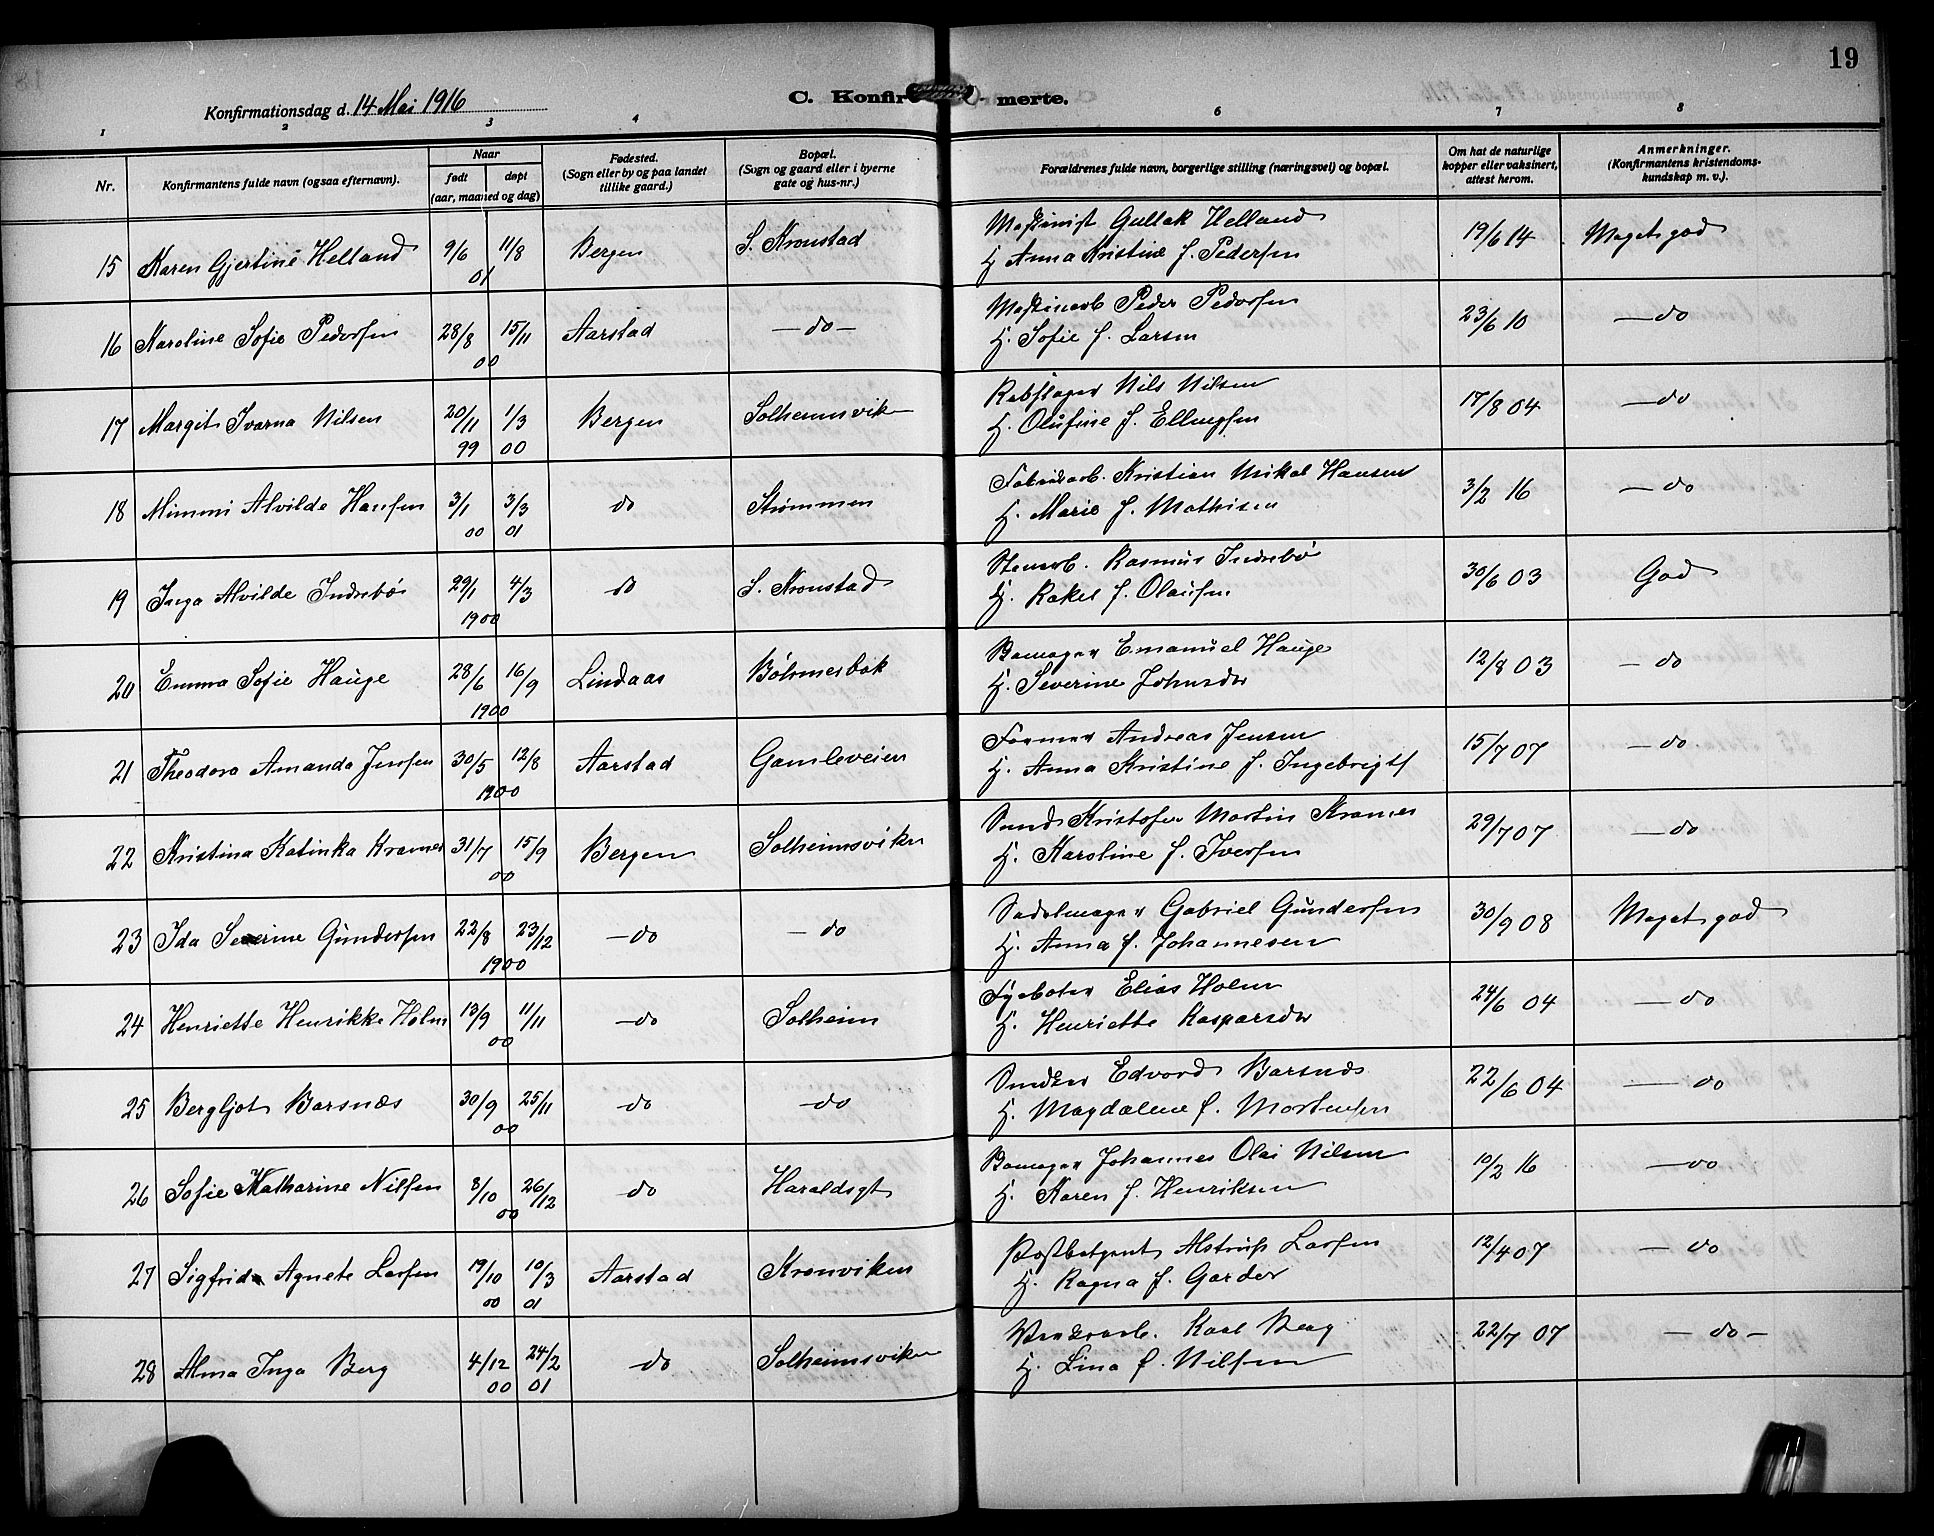 19
Konfirmationsdag d. 14 Mai 1916
C. Konfir merte.
1 2 3 4 6 7 8
Nr. Konfirmantens fulde navn (ogsaa efternavn). Naar født døpt (aar, maaned og dag) Fødested. (Sogn eller by og paa landet tillike gaard.) Bopæl. (Sogn og gaard eller i byerne gate og hus-nr.) Forældrenes fulde navn, borgerlige stilling (næringsvei) og bopæl. Om hat de naturlige kopper eller vaksinert, attest herom. Anmerkninger. (Konfirmantens kristendoms-kundskap m. v.).
15 Karen Gjertine Helland 9/6 11/8 01 Bergen S. Kronstad Maskinist Gullak Helland 19/6 14 Meget god
H. Anna Kristine f. Pedersen
16 Karoline Sofie Pedersen 28/8 15/11 00 Aarstad — do — Maskinarb Peder Pedersen 23/6 10 — do
H. Sofie f. Larsen
17 Margit Ivarna Nilsen 20/11 99 1/3 00 Bergen Solheimsvik Rebslager Nils Nilsen 17/8 04 — do
H. Olufine f. Ellingsen
18 Mimmi Alvilde Hansen 3/1 00 3/3 01 do Strømmen Fabrikarb. Kristian Mikal Hansen 3/2 16 — do
H. Marie f. Mathisen
19 Inga Alvilde Indrebø 29/1 4/3 1900 do S. Kronstad Stenarb. Rasmus Indrebö 30/6 03 God
H. Rakel f. Olausen
20 Emma Sofie Hauge 28/6 16/9 1900 Lindaas Böhmerbak Emanuel Hauge 12/8 03 — do
H. Severine Johnsdr
21 Theodora Amanda Jensen 30/5 12/8 1900 Aarstad Gamleveien Former Andreas Jensen 15/7 07 — do
H. Anna Kristine f. Ingebrigts
22 Kristina Katinka Kramer 31/7 15/9 00 Bergen Solheimsviken Kristofer Martin Kramer 29/7 07 — do
H. Karoline f. Iversen
23 Ida Severine Gundersen 22/8 23/12 1900 — do — do Sadelmager Gabriel Gundersen 30/9 08 Meget god
H. Anna f. Johannesen
24 Henriette Henrikke Holm 13/9 11/11 00 — do Solheim Fyrbøter Elias Holm 24/6 04 — do
H. Henriette Kasparsdr
25 Bergljot Barsnæs 30/9 25/11 00 — do — do Snedker Edvard Barsnæs 22/6 04 — do
H. Magdalene f. Mortensen
26 Sofie Katharine Nilsen 8/10 26/12 00 do Haraldsgt Johannes Olai Nilsen 10/2 16 — do
H. Karen f. Henriksen
27 Sigfrid Agnete Larsen 19/10 00 10/3 01 Aarstad Kronviken Postbetjent Alstrup Larsen 12/4 07 — do
H. Ragna f. Garder
28 Alma Inga Berg 4/12 00 24/2 01 — do Solheimsviken Karl Berg 22/7 07 — do —
H. Lina f. Nilsen